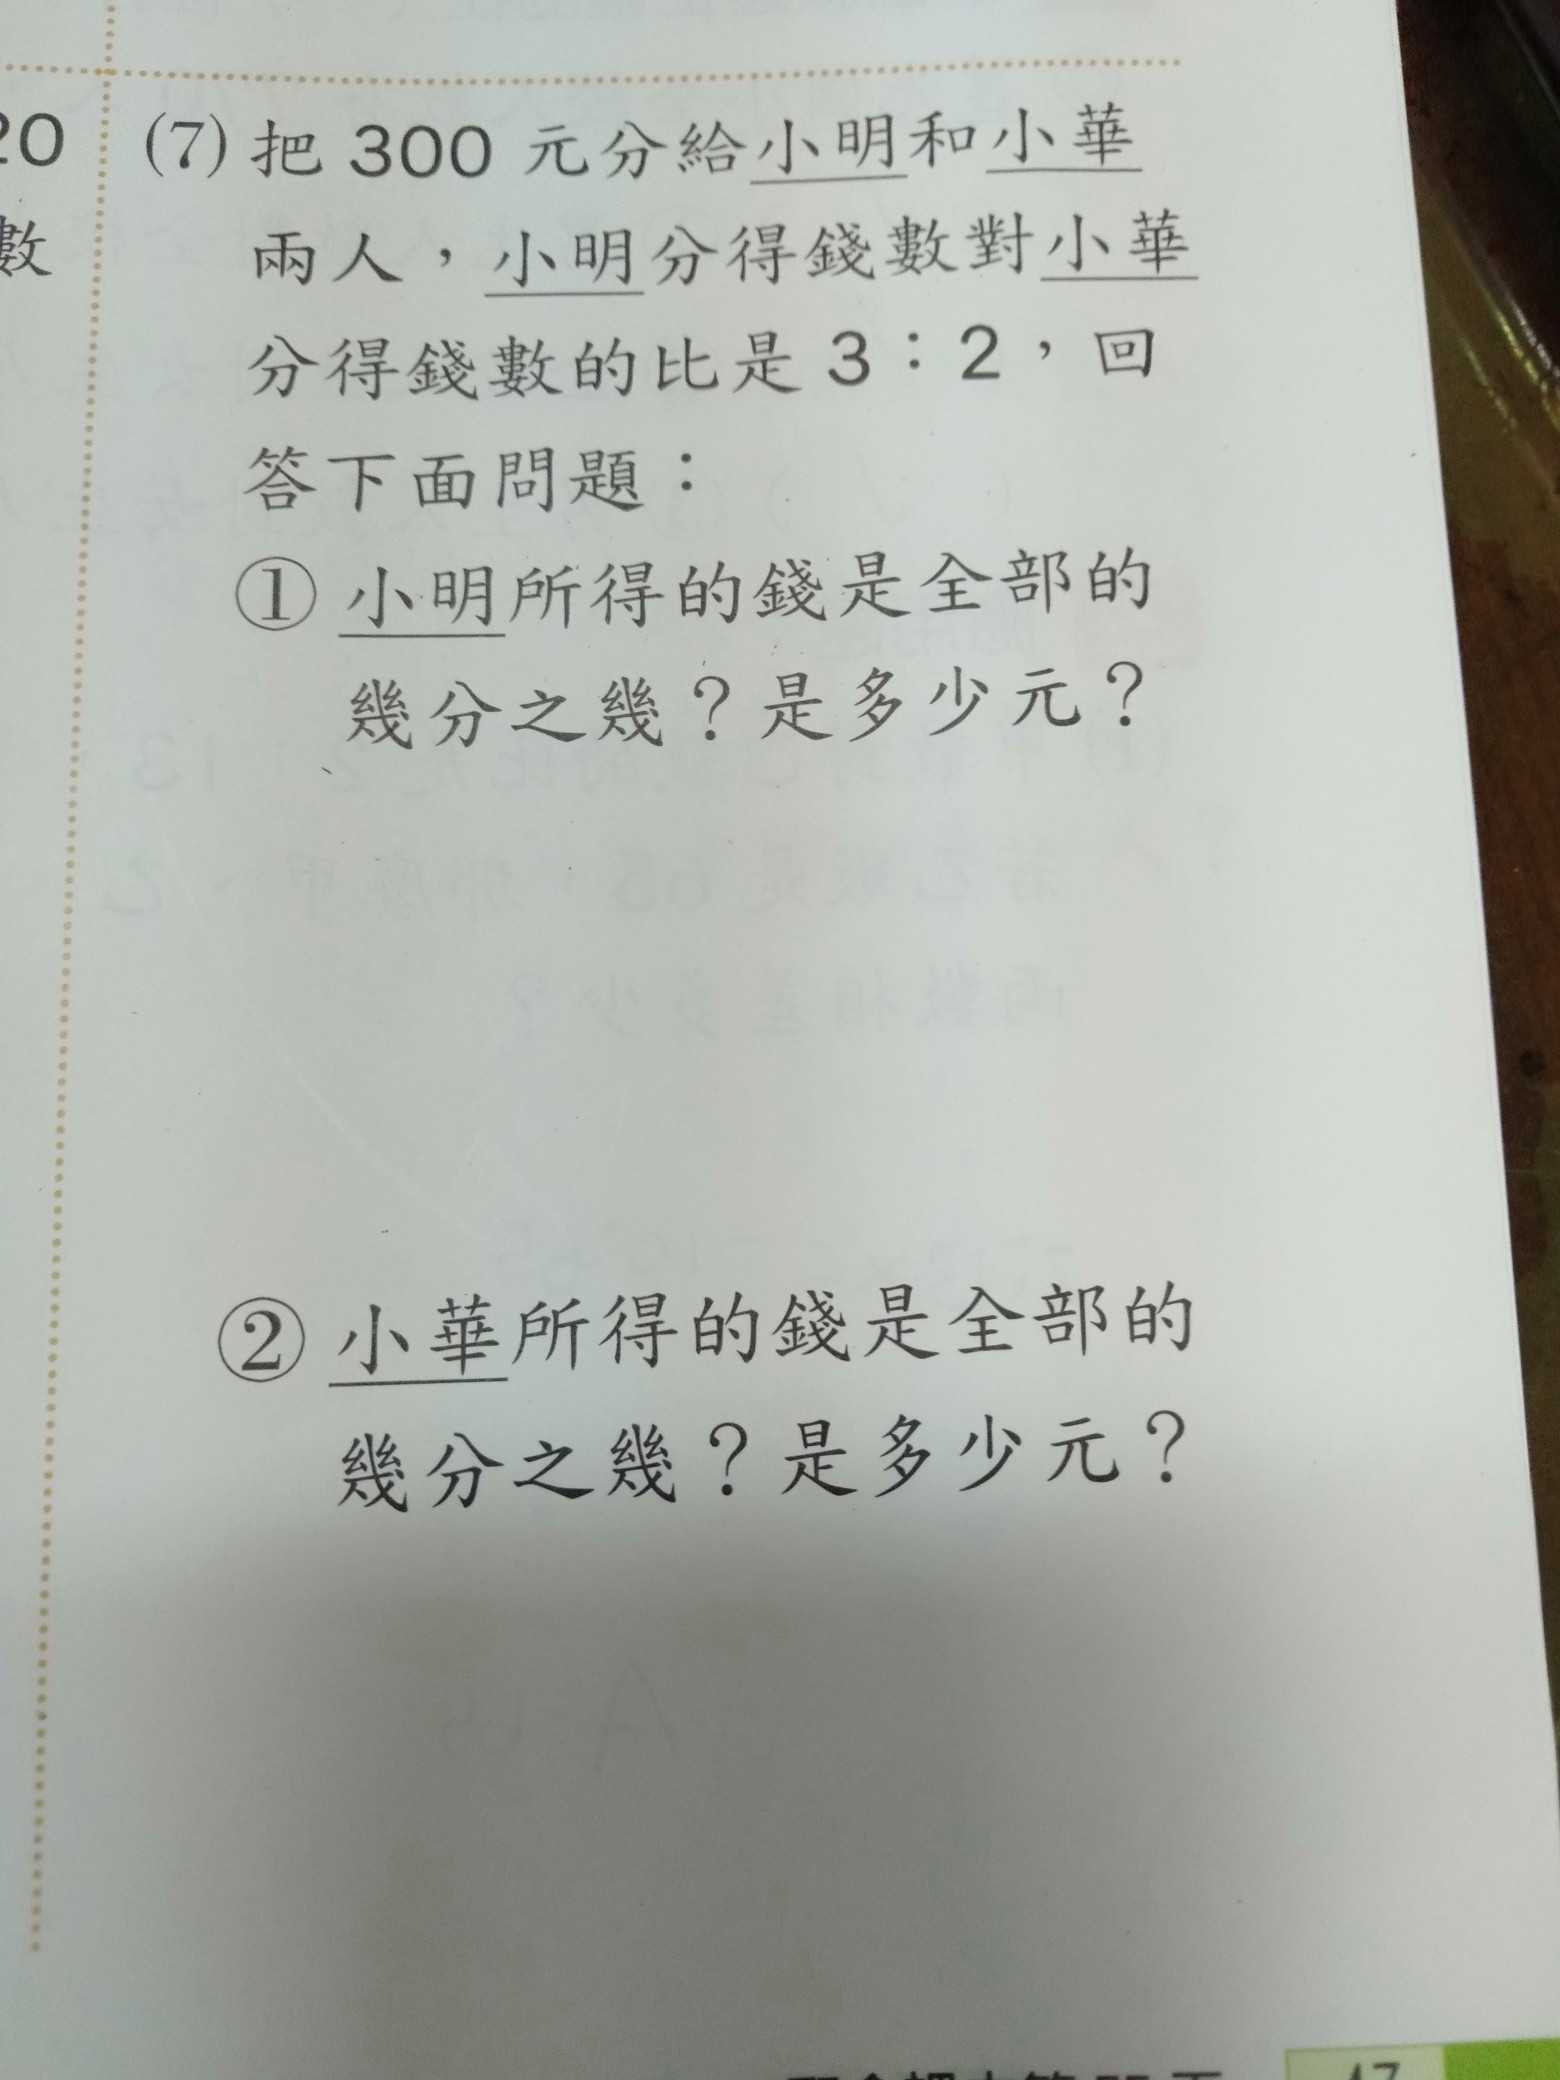 20
數
(7) 把 300 元分給小明和小華
兩人，小明分得錢數對小華
分得錢數的比是 3：2，回
答下面問題：
① 小明所得的錢是全部的
幾分之幾？是多少元？
② 小華所得的錢是全部的
幾分之幾？是多少元？
47